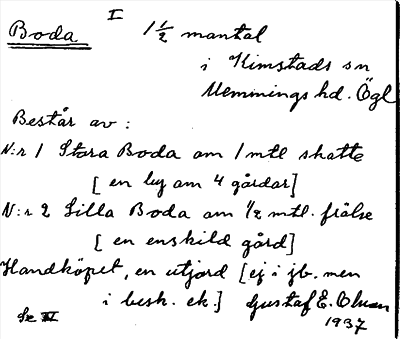 Boda I 1 1/2 mantal
i Kimstads sn
Memmings hd. Ögl
Består av :
N:r 1 Stora Boda om 1 mtl skatte
[ en by om 4 gårdar]
N:r 2 Lilla Boda om 1/2 mtl. frälse
[ en enskild gård]
Handköpet, en utjord [ej i jb. men
i besk. ek.] Gustaf E. Olsson
Se IV 1937